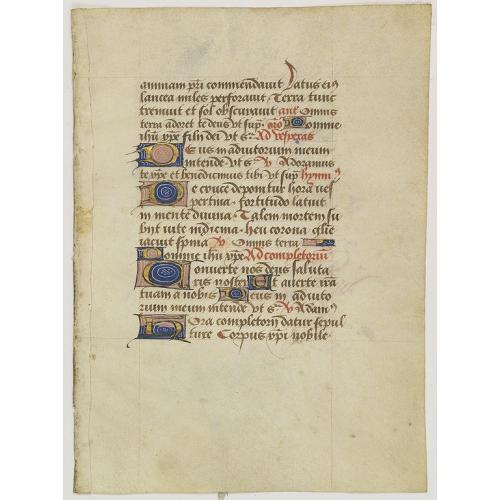 animam pr̄i commendauit Latus eiꝰ
lancea miles perforauit · Terra tunc
tremuit et sol obscurauit an̄ Omnis
terra adoret te deus vt supͣ· oro Domine
ihū xp̄e fili dei vt sͣ· Ad vesperas
Deus in adiutorium meum
intende vt sͣ· V Adoramus
te xp̄e et benedicimus tibi vt supͣ hymnꝰ
De cruce deponitur hora ves
pertina · fortitudo latuit
in mente diuina · Talem mortem su
biit vite medicina · heu corona glīe
iacuit supina V· Omnis terra
Domine ihū xp̄e Ad completoriū
Conuerte nos deus saluta
ris noster Et auerte irā
tuam a nobis Deus in adiuto
rium meum intende vt sͣ· V Adamꝰ
Hora completorij datur sepul
ture Corpus xp̄i nobile ·